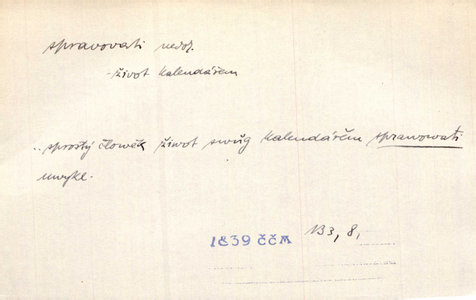 spravovati nedok.
-život kalendářem
..sprostý člowěk žiwot swůg kalendářěm sprawowati
uwykl.
1839 ČČM 133, 8,